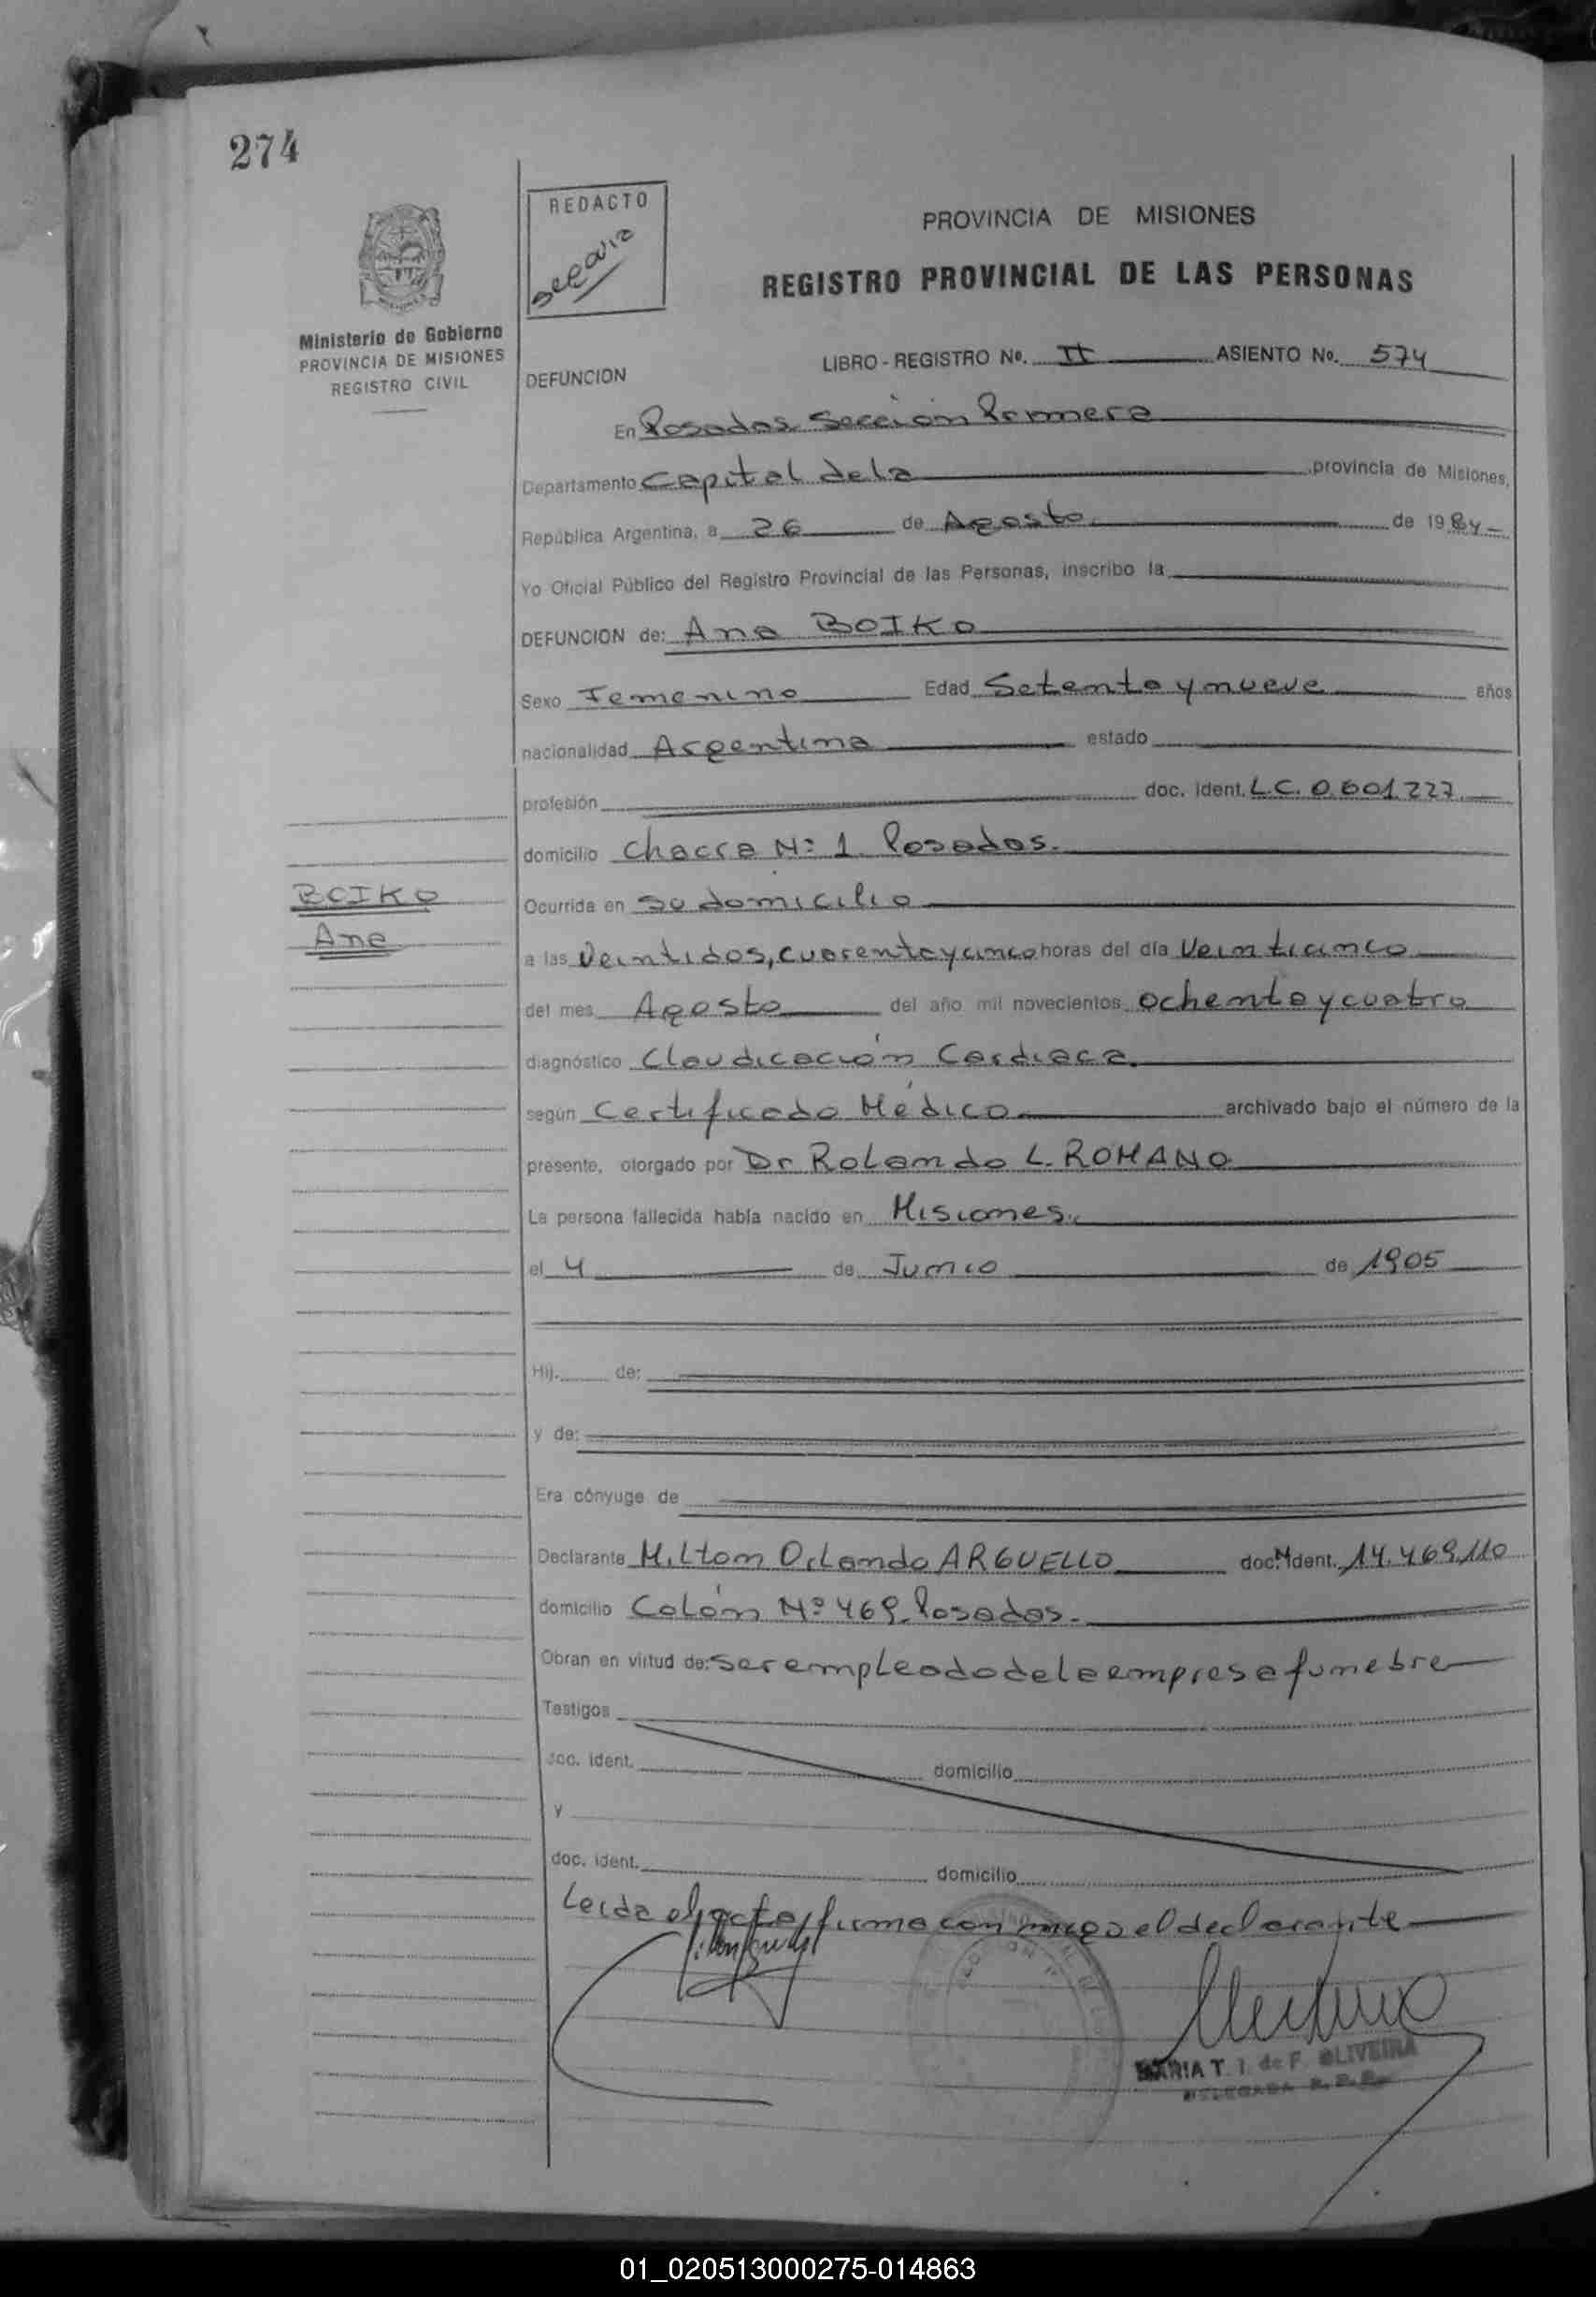 274
REDACTO
PROVINCIA DE MISIONES
REGISTRO PROVINCIAL DE LAS PERSONAS
Ministerio de Gobierno
PROVINCIA DE MISIONES
REGISTRO CIVIL
LIBRO - REGISTRO No. II ASIENTO No. 574
DEFUNCION
En Posadas Sección Primera
Departamento Capital de la provincia de Misiones,
República Argentina, a 26 de Agosto de 1984
Yo Oficial Público del Registro Provincial de las Personas, inscribo la
DEFUNCION de: Ana BOIKO
Sexo Femenino Edad Setenta y nueve años
nacionalidad Argentina estado
profesión doc. ident. L.C. 0.601.227
domicilio Chacra Nº 1 Posadas.
BOIKO
Ana
Ocurrida en su domicilio
a las Veintidos, cuarenta y cinco horas del día Veinticinco
del mes Agosto del año mil novecientos ochenta y cuatro
diagnóstico Claudicación Cardiaca.
según Certificado Médico archivado bajo el número de la
presente, otorgado por Dr Rolando L. ROMANO
La persona fallecida había nacido en Misiones.
el 4 de Junio de 1905
Hij. de:
y de:
Era cónyuge de
Declarante Milton Orlando ARGUELLO doc. ident. 14.469.110
domicilio Colón Nº 469. Posadas.
Obran en virtud de: ser empleado de la empresa funebre
Testigos
doc. ident. domicilio
y
doc. ident. domicilio
Leida el acta, firma con migo el declarante
MARIA T. I. de F. OLIVEIRA
DELEGADA R. P. P.
01_020513000275-014863